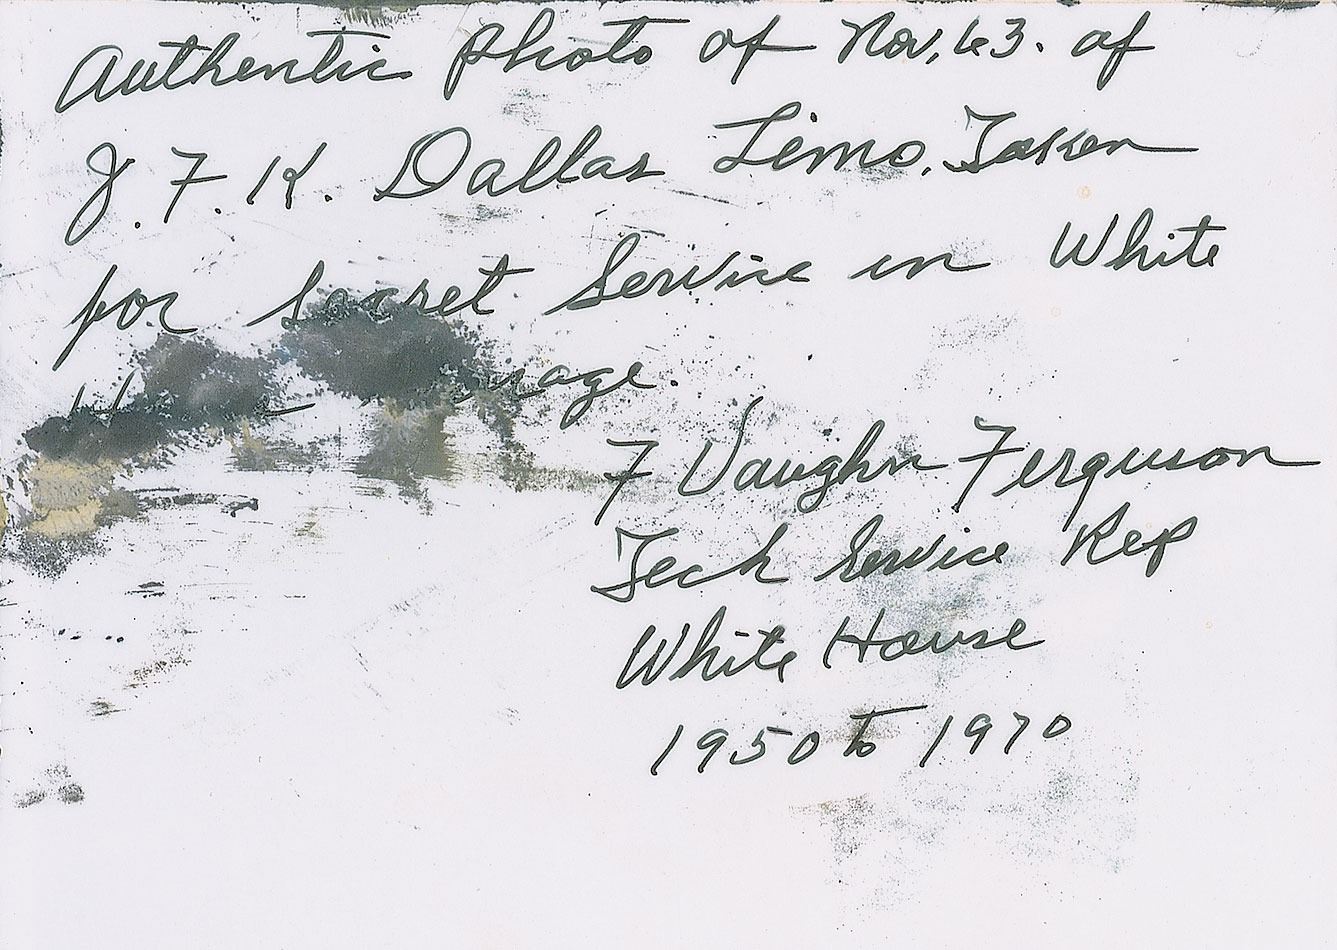 Authentic Photo of Nov, 63. of
J. F. K. Dallas Limo. Taken
for Secret Service in White
F Vaughn Ferguson
Tech Service Rep
White House
1950 to 1970